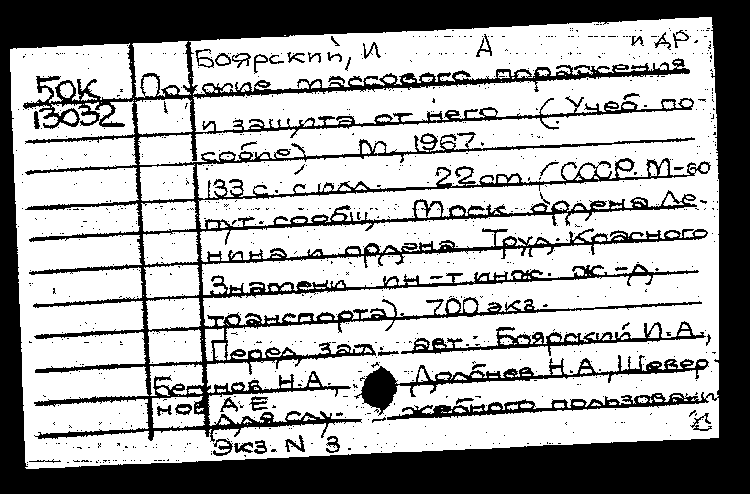 Боярский, И А и др.
50К Оружие массового поражения
13032 и защита от него (Учеб. по-
собие) М., 1967.
133 с. с илл. 22 см. (СССР. М-во
пут. сообщ. Моск ордена Ле-
нина и ордена Труд. Красного
Знамени ин-т инж. ж.-д.
транспорта). 700 экз.
Перед загл. авт.: Боярский И.А.,
Н.А., Долбнев Н.А., Шевер-
нов А.Е
(Для слу- жебного пользовани
Экз. N 3.